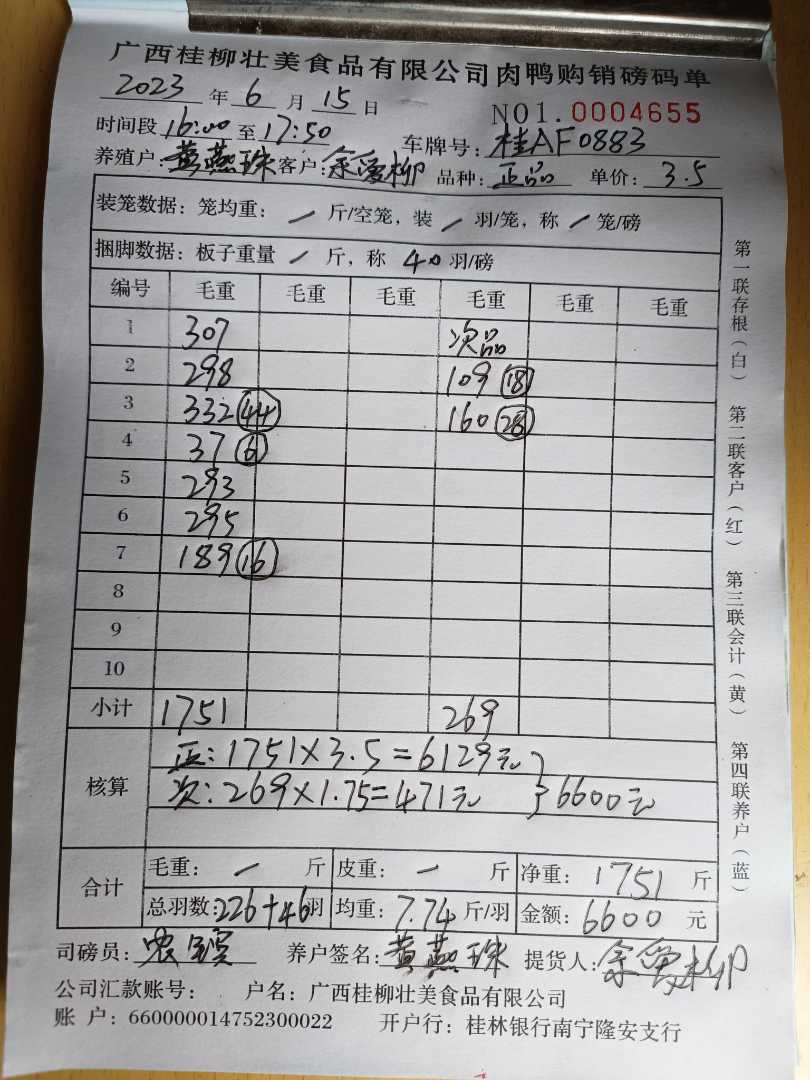 广西桂柳壮美食品有限公司肉鸭购销磅码单
2023年6月15日 NO1.0004655
时间段16:00至17:50 车牌号:桂AF0883
养殖户:黄燕珠客户:余爱柳 品种:正品 单价:3.5
装笼数据:笼均重:/斤/空笼,装/羽/笼,称/笼/磅
捆脚数据:板子重量/斤,称40羽/磅
编号 毛重 毛重 毛重 毛重 毛重 毛重
1 307 次品
2 298 109 18
3 332 44 160 28
4 37 6
5 293
6 295
7 189 16
8
9
10
小计 1751 269
核算 正:1751×3.5=6129元
次:269×1.75=471元 6600元
合计 毛重:一斤 皮重:一斤 净重:1751斤
总羽数:226+46羽 均重:7.74斤/羽 金额:6600元
司磅员: 养户签名:黄燕珠 提货人:余爱柳
公司汇款账号: 户名:广西桂柳壮美食品有限公司
账户:660000014752300022 开户行:桂林银行南宁隆安支行
第一联存根(白) 第二联客户(红) 第三联会计(黄) 第四联养户(蓝)